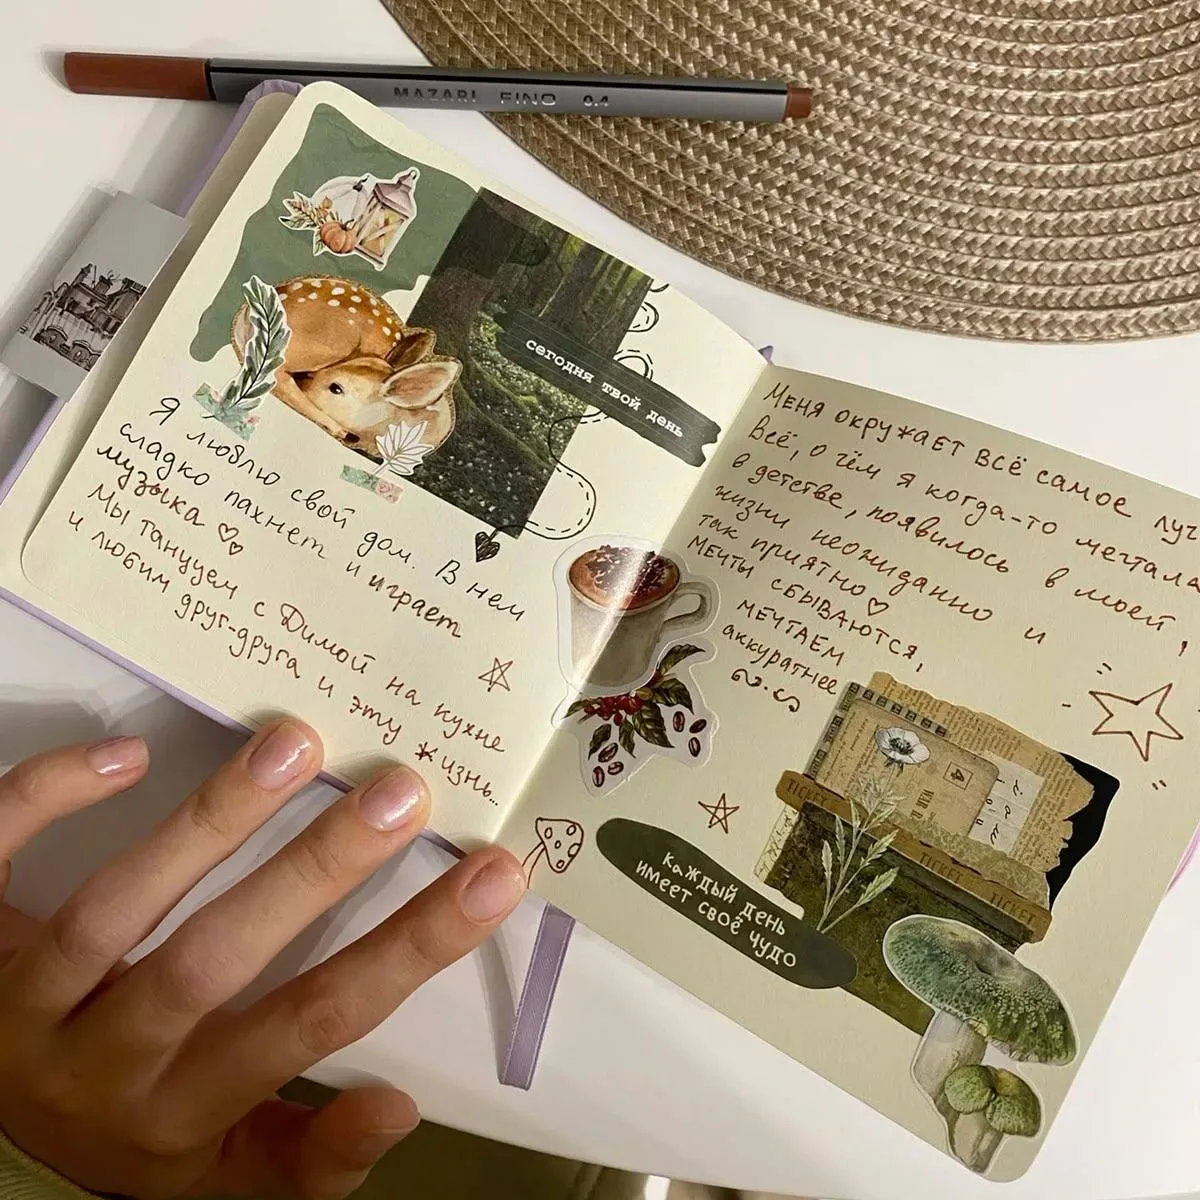 MAZARI FINO 0.4
сегодня твой день
Я люблю свой дом. В нем
сладко пахнет и играет
музыка ♡♡
Мы танцуем с Димой на кухне
и любим друг-друга и эту жизнь...
Меня окружает всё самое
Всё, о чём я когда-то мечтала
в детстве, появилось в моей
жизни неожиданно и
так приятно ♡
мечты СБЫВАЮТСЯ,
МЕЧТАЕМ
аккуратнее
TICKET
4
TICKET
TICKET
каждый день
имеет своё чудо